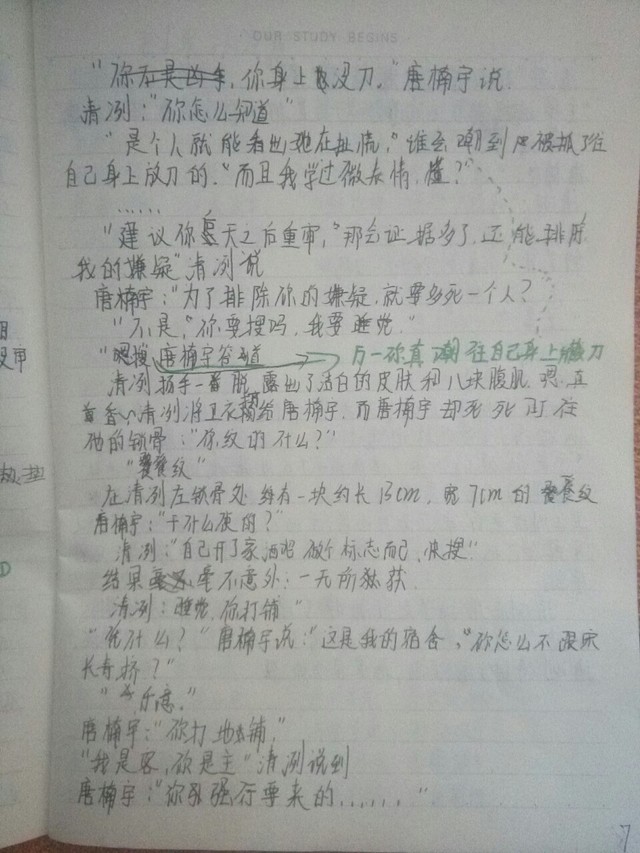 OUR STUDY BEGINS
"你不是凶手，你身上没刀。"唐楠宇说.
清冽："你怎么知道"
"是个人就能看出她在扯慌，"谁会潮到被抓了往
自己身上放刀的."而且我学过微表情，懂？"
……
"建议你夏天之后重审，"那会证据多了，还能排除
我的嫌疑"清冽说
唐楠宇："为了排除你的嫌疑，就要多死一个人？
"不是，你要搜吗，我要睡觉"
"嗯搜 唐楠宇答道 万一你真潮往自己身上藏刀
清冽扬手一脱，露出了洁白的皮肤和八块腹肌.
清冽将卫衣给唐楠宇，而唐楠宇却死死盯住
他的锁骨："你纹的什么？"
"饕餮纹"
在清冽左锁骨处纹有一块约长13cm，宽7cm的饕餮纹
唐楠宇："干什么使的？"
清冽："自己开了家酒吧做个标志而已，快搜."
结果毫不意外：一无所获
清冽：睡觉，你打铺"
"凭什么？"唐楠宇说："这是我的宿舍，"你怎么不跟宋
长奇挤？"
"不乐意."
唐楠宇："你打地铺."
"我是客，你是主"清冽说到
唐楠宇："你强行要来的……"
7